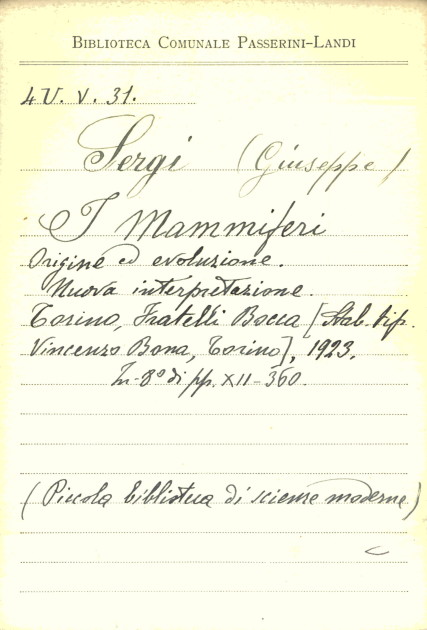 BIBLIOTECA COMUNALE PASSERINI-LANDI
4U. V. 31.
Sergi (Giuseppe)
I Mammiferi
Origine ed evoluzione.
Nuova interpretazione.
Torino, Fratelli Bocca [Stab. Tip.
Vincenzo Bona, Torino], 1923.
In-8º di pp. XII-360.
(Piccola biblioteca di scienze moderne)